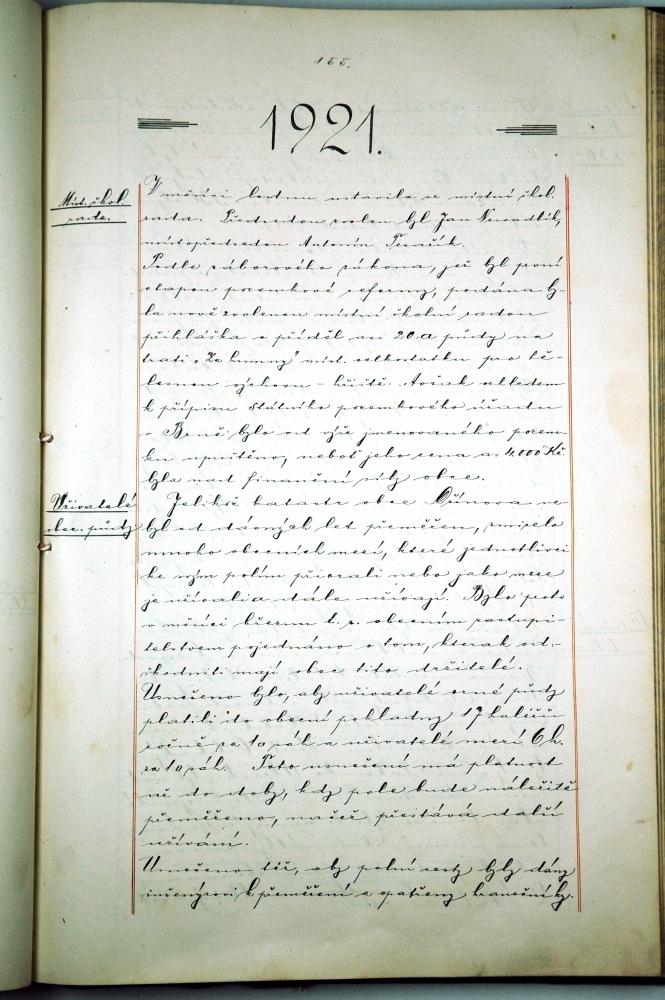 155.
1921.
Míst. škol.
rada.
V měsíci lednu ustavila se místní škol.
rada. Předsedou zvolen byl Jan
místopředsedou Antonín
Podle záborového zákona, jež byl první
etapou pozemkové reformy, podána by-
la nově zvolenou místní školní radou
přihláška o příděl asi 20 a půdy na
trati „Za humny" míst. velkostatku pro tě-
lesnou výchovu - hřiště. Avšak vzhledem
k přípisu Státního pozemkového úřadu
v Brně bylo od výše jmenovaného pozem-
ku upuštěno, neboť jeho cena as 4.000 Kč.
byla nad finanční síly obce.
Uživatelé
obec. půdy
Jelikož katastr obce ne-
byl od dávných let přeměřen, zmizelo
mnoho obecních mezí, které jednotlivci
ke svým polím přiorali nebo jako meze
je užívali a stále užívají. Bylo proto
v měsíci březnu t. r. obecním zastupi-
telstvem pojednáno o tom, kterak od-
škodniti mají obec tito držitelé.
Usneseno bylo, aby uživatelé orné půdy
platili do obecní pokladny 17 haléřů
ročně za 1 □ sáh a uživatelé mezí 6 h.
za 1 □ sáh. Toto usnesení má platnost
až do doby, kdy pole bude náležitě
přeměřeno, načež přestává další
užívání.
Usneseno též, aby polní cesty byly dány
inženýrovi k přeměření a opatřeny hraničníky.